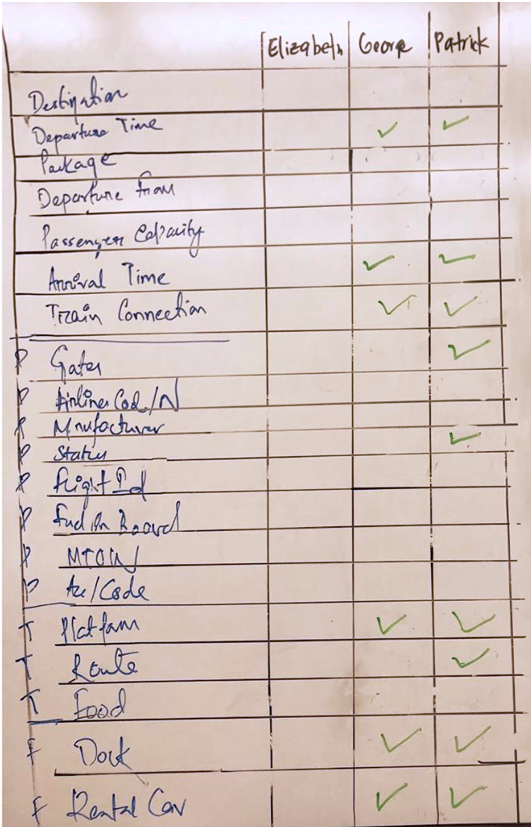 Elizabeth George Patrick
Destination
Departure Time ✓ ✓
Package
Departure from
Passenger Capacity
Arrival Time ✓ ✓
Train Connection ✓ ✓
P Gates ✓
P Airlines Cod/N
P Mnufacturer
P Status ✓
P Flight Id
P Fuel On Board
P MTOW
P Code
T Platform ✓ ✓
T Route ✓
T Food
F Dock ✓ ✓
F Rental Car ✓ ✓